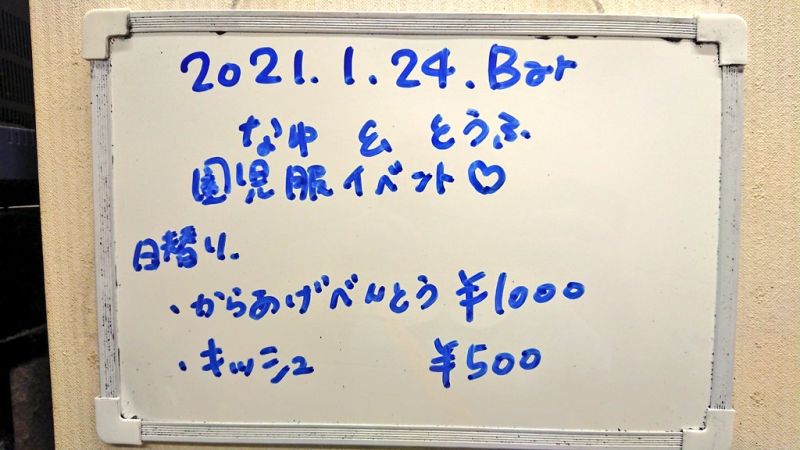 2021.1.24.Bar
なゆ & とうふ
園児服イベント♡
日替り.
・からあげべんとう ¥1000
・キッシュ ¥500